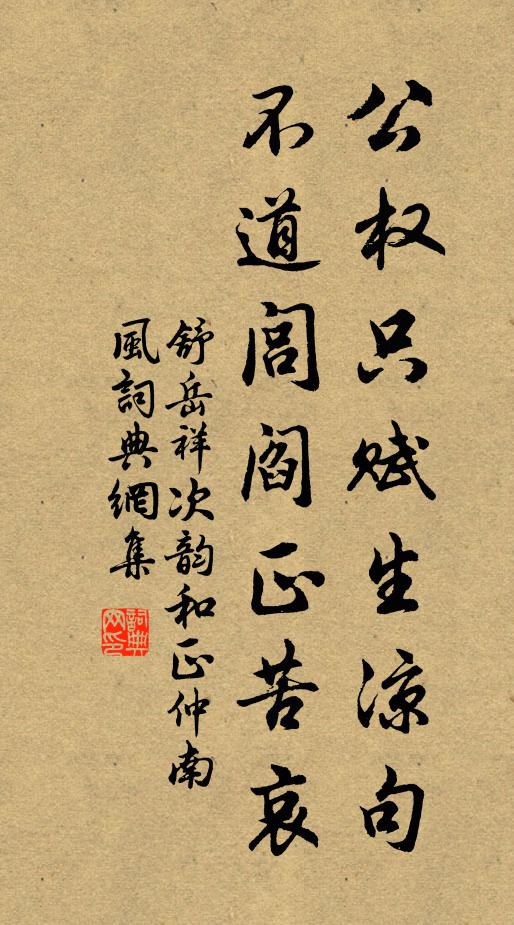 公权只赋生凉句
不道闾阎正苦哀
舒岳祥次韵和正仲南
風詞典網集
詞典
网印